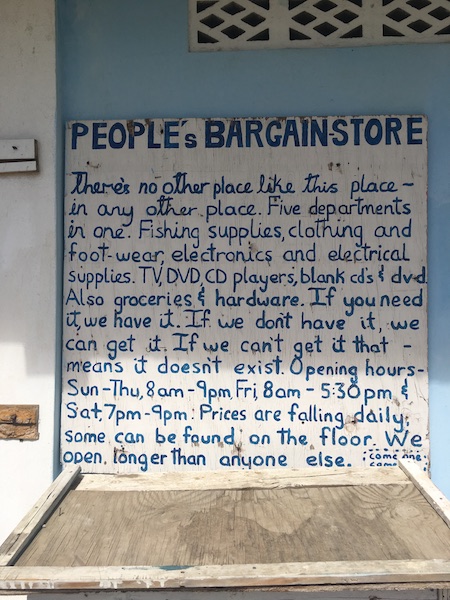 PEOPLE's BARGAIN-STORE
There's no other place like this place ~
in any other place. Five departments
in one. Fishing supplies, clothing and
foot-wear, electronics and electrical
supplies. TV, DVD, CD players, blank cd's & dvd
Also groceries & hardware. If you need
it, we have it. If we don't have it, we
can get it. If we can't get it that -
means it doesn't exist. Opening hours-
Sun-Thu, 8am-9pm, Fri, 8am - 5:30pm &
Sat, 7pm-9pm. Prices are falling daily,
some can be found on the floor. We
open longer than anyone else. come one
come